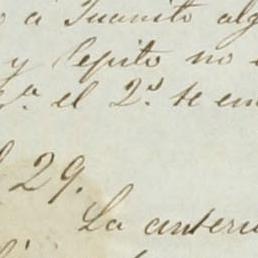 o a Juanito alg
y Pepito no
el 2º te em
29.
La anteri